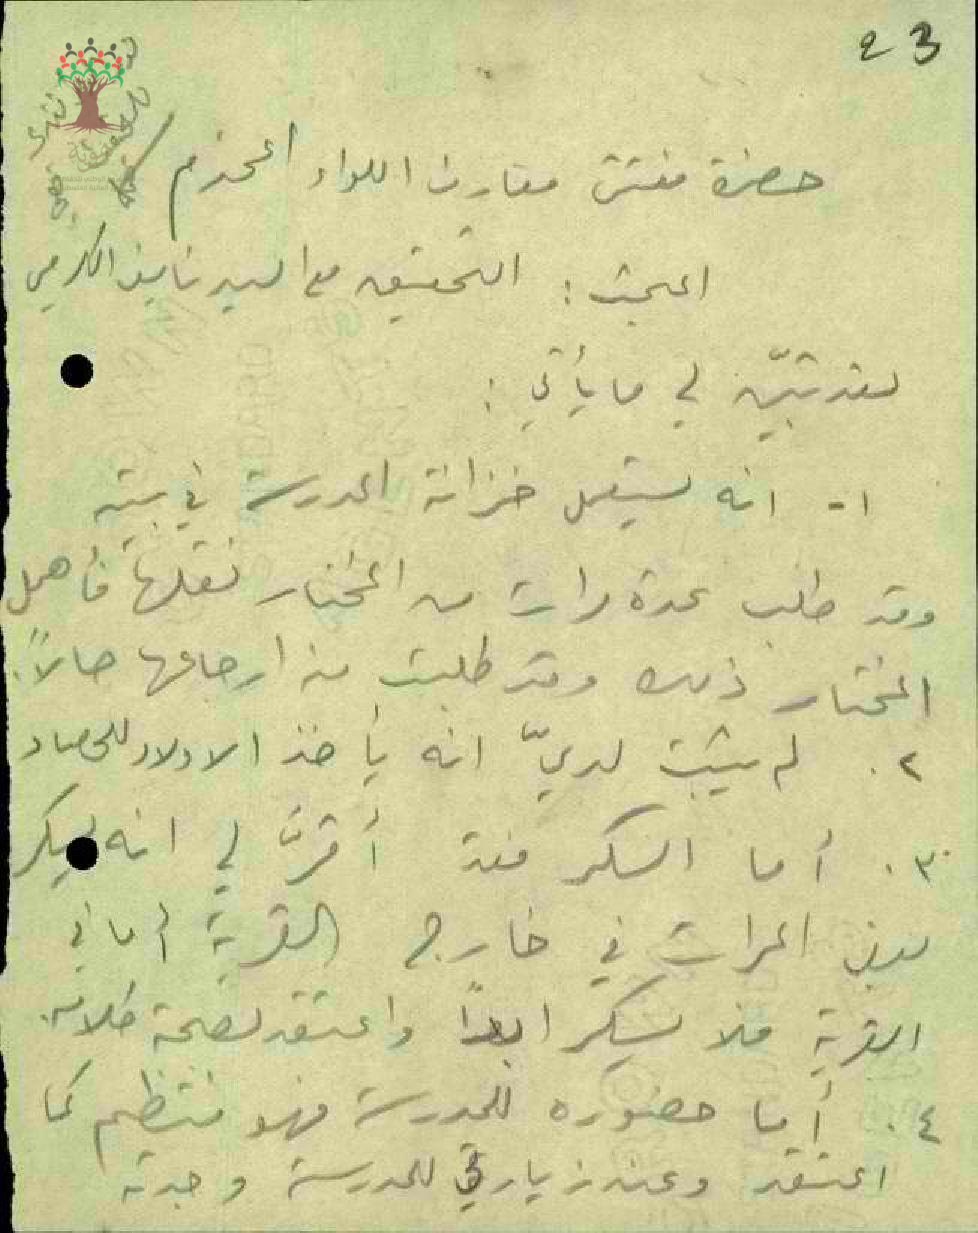 23
حضرة مفتش معارف اللواء المحترم
المبحث: التحقيق مع السيد نايف الكرمي
لقد تبيّن لي ما يأتي:
١- انه يستعمل خزانة المدرسة في بيته
وقد طلب عدة مرات من المختار نقلها فأهمل
المختار ذلك وقد طلبت منه ارجاعها حالاً.
٢. لم يثبت لديّ انه يأخذ الاولاد للحصاد
٣. أما السكر فقد أقرّ لي انه يسكر
بعض المرات في خارج القرية أما في
القرية فلا يسكر ابداً واعتقد بصحة كلامه.
٤. أما حضوره للمدرسة فهو منتظم كما
اعتقد وعند زيارتي للمدرسة وجدته